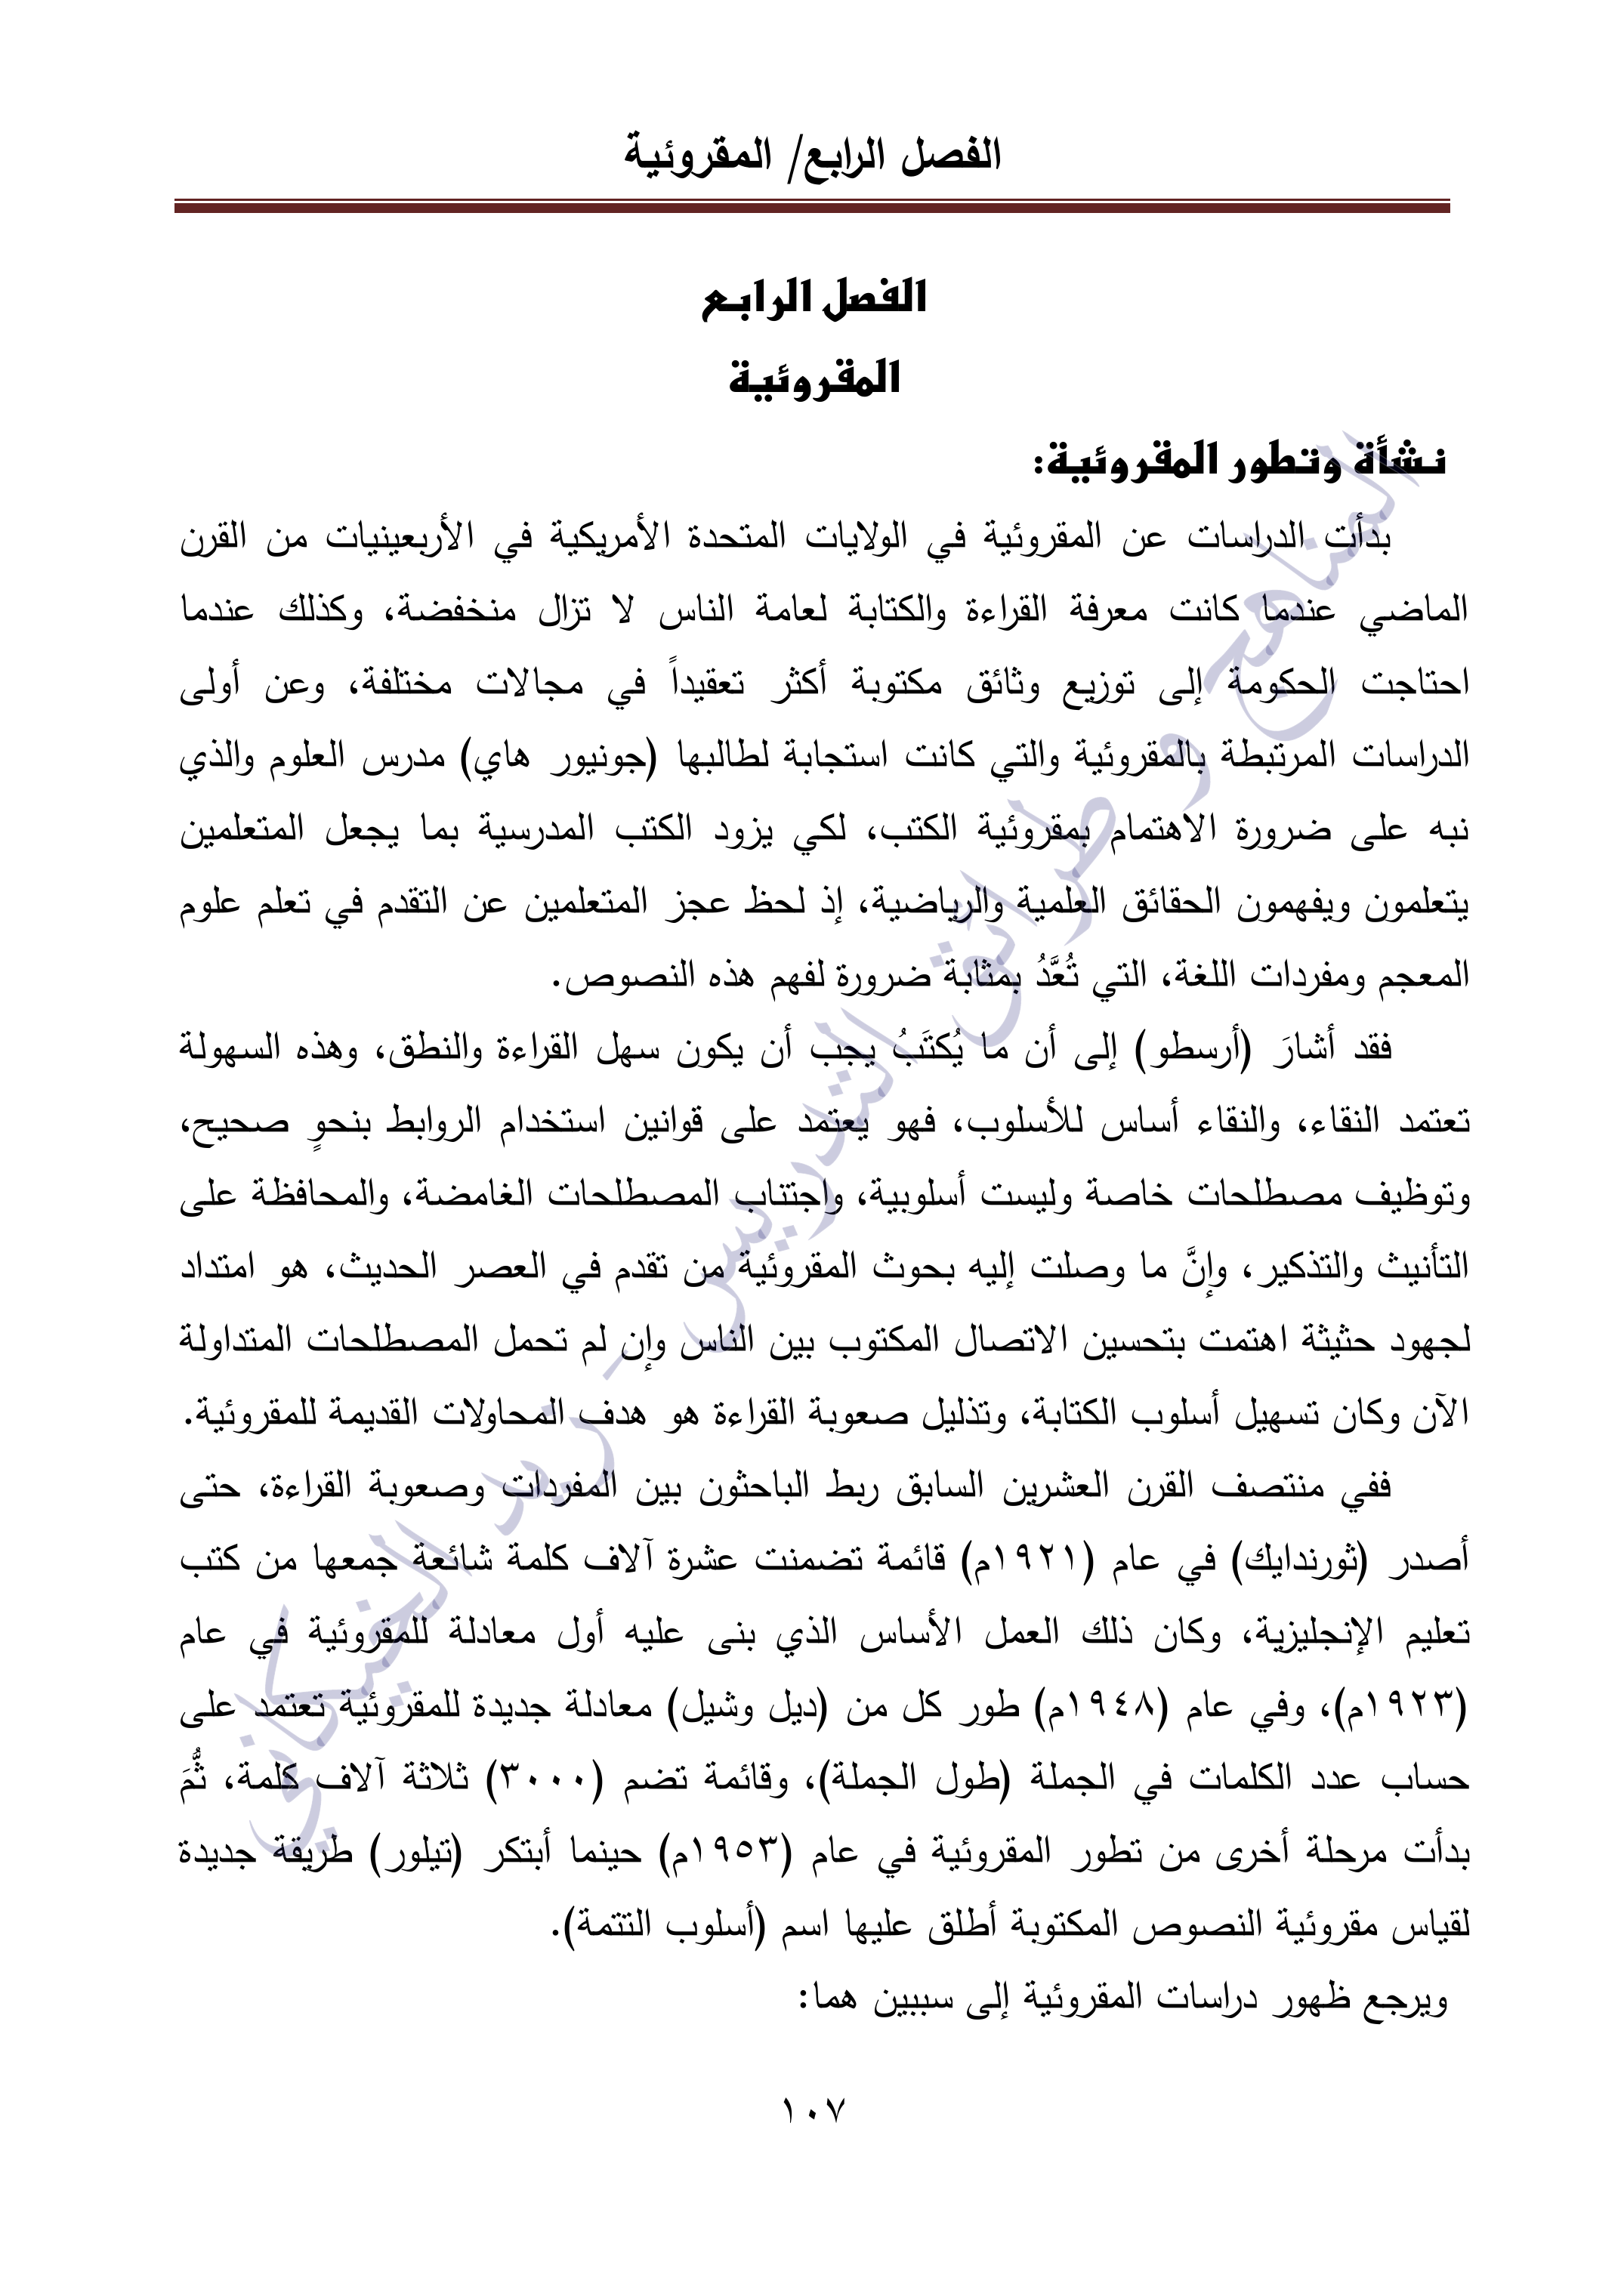 الفصل الرابع/ المقروئية
الفصل الرابع
المقروئية
نشأة وتطور المقروئية:
بدأت الدراسات عن المقروئية في الولايات المتحدة الأمريكية في الأربعينيات من القرن
الماضي عندما كانت معرفة القراءة والكتابة لعامة الناس لا تزال منخفضة، وكذلك عندما
احتاجت الحكومة إلى توزيع وثائق مكتوبة أكثر تعقيداً في مجالات مختلفة، وعن أولى
الدراسات المرتبطة بالمقروئية والتي كانت استجابة لطالبها (جونيور هاي) مدرس العلوم والذي
نبه على ضرورة الاهتمام بمقروئية الكتب، لكي يزود الكتب المدرسية بما يجعل المتعلمين
يتعلمون ويفهمون الحقائق العلمية والرياضية، إذ لحظ عجز المتعلمين عن التقدم في تعلم علوم
المعجم ومفردات اللغة، التي تُعَّدُ بمثابة ضرورة لفهم هذه النصوص.
فقد أشارَ (أرسطو) إلى أن ما يُكتَبُ يجب أن يكون سهل القراءة والنطق، وهذه السهولة
تعتمد النقاء، والنقاء أساس للأسلوب، فهو يعتمد على قوانين استخدام الروابط بنحوٍ صحيح،
وتوظيف مصطلحات خاصة وليست أسلوبية، واجتتاب المصطلحات الغامضة، والمحافظة على
التأنيث والتذكير، وإنَّ ما وصلت إليه بحوث المقروئية من تقدم في العصر الحديث، هو امتداد
لجهود حثيثة اهتمت بتحسين الاتصال المكتوب بين الناس وإن لم تحمل المصطلحات المتداولة
الآن وكان تسهيل أسلوب الكتابة، وتذليل صعوبة القراءة هو هدف المحاولات القديمة للمقروئية.
ففي منتصف القرن العشرين السابق ربط الباحثون بين المفردات وصعوبة القراءة، حتى
أصدر (ثورندايك) في عام (١٩٢١م) قائمة تضمنت عشرة آلاف كلمة شائعة جمعها من كتب
تعليم الإنجليزية، وكان ذلك العمل الأساس الذي بنى عليه أول معادلة للمقروئية في عام
(١٩٢٣م)، وفي عام (١٩٤٨م) طور كل من (ديل وشيل) معادلة جديدة للمقروئية تعتمد على
حساب عدد الكلمات في الجملة (طول الجملة)، وقائمة تضم (٣٠٠٠) ثلاثة آلاف كلمة، ثُّمَ
بدأت مرحلة أخرى من تطور المقروئية في عام (١٩٥٣م) حينما أبتكر (تيلور) طريقة جديدة
لقياس مقروئية النصوص المكتوبة أطلق عليها اسم (أسلوب التتمة).
ويرجع ظهور دراسات المقروئية إلى سببين هما:
١٠٧
المناهج و طرائق التدريس - زيد الخيكاني